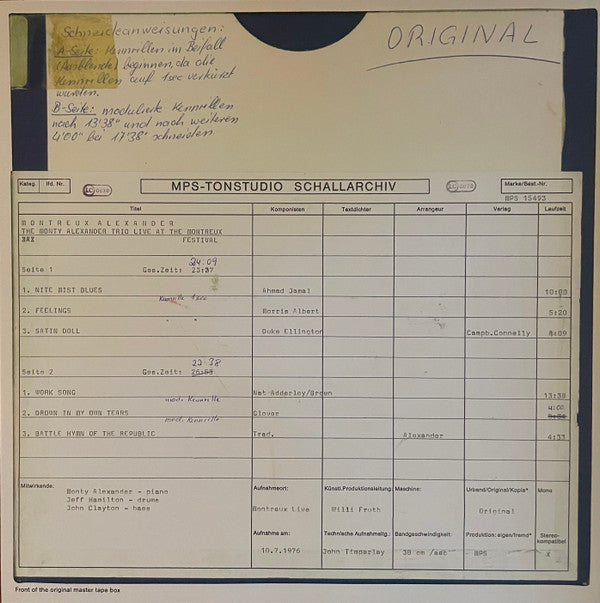 Schneideanweisungen:
A-Seite: Kennrillen im Beifall
(Ausblende) beginnen, da die
Kennrillen auf 1sec verkürzt
wurden.
B-Seite: modulierte Kennrillen
nach 13'38" und nach weiteren
4'00" bei 17'38 schneiden
ORIGINAL
Kateg. lfd. Nr. LC 0979 MPS-TONSTUDIO SCHALLARCHIV LC 0979 Marke/Best.-Nr.
MPS 15493
Titel Komponisten Textdichter Arrangeur Verlag Laufzeit
MONTREUX ALEXANDER
THE MONTY ALEXANDER TRIO LIVE AT THE MONTREUX
FESTIVAL
24:09
Seite 1 Ges.Zeit: 23:37
1. NITE MIST BLUES Ahmad Jamal 10:00
Kennrille 1sec
2. FEELINGS Morris Albert 5:20
3. SATIN DOLL Duke Ellington Campb.Connelly 8:09
22:38
Seite 2 Ges.Zeit:
1. WORK SONG Nat Adderley/Brown 13:38
mod. Kennrille 4:00
2. DROWN IN MY OWN TEARS Glover
mod. Kennrille
3. BATTLE HYMN OF THE REPUBLIC Trad. Alexander 4:33
Mitwirkende: Aufnahmeort: Künstl.Produktionsleitung: Maschine: Urband/Original/Kopie* Mono
Monty Alexander - piano
Jeff Hamilton - drums
John Clayton - bass
Montreux Live Willi Fruth Original
Aufnahme am: Technische Aufnahmeltg.: Bandgeschwindigkeit: Produktion: eigen/fremd* Stereo-
kompatibel
10.7.1976 John Timperley 38 cm /sec MPS x
Front of the original master tape box